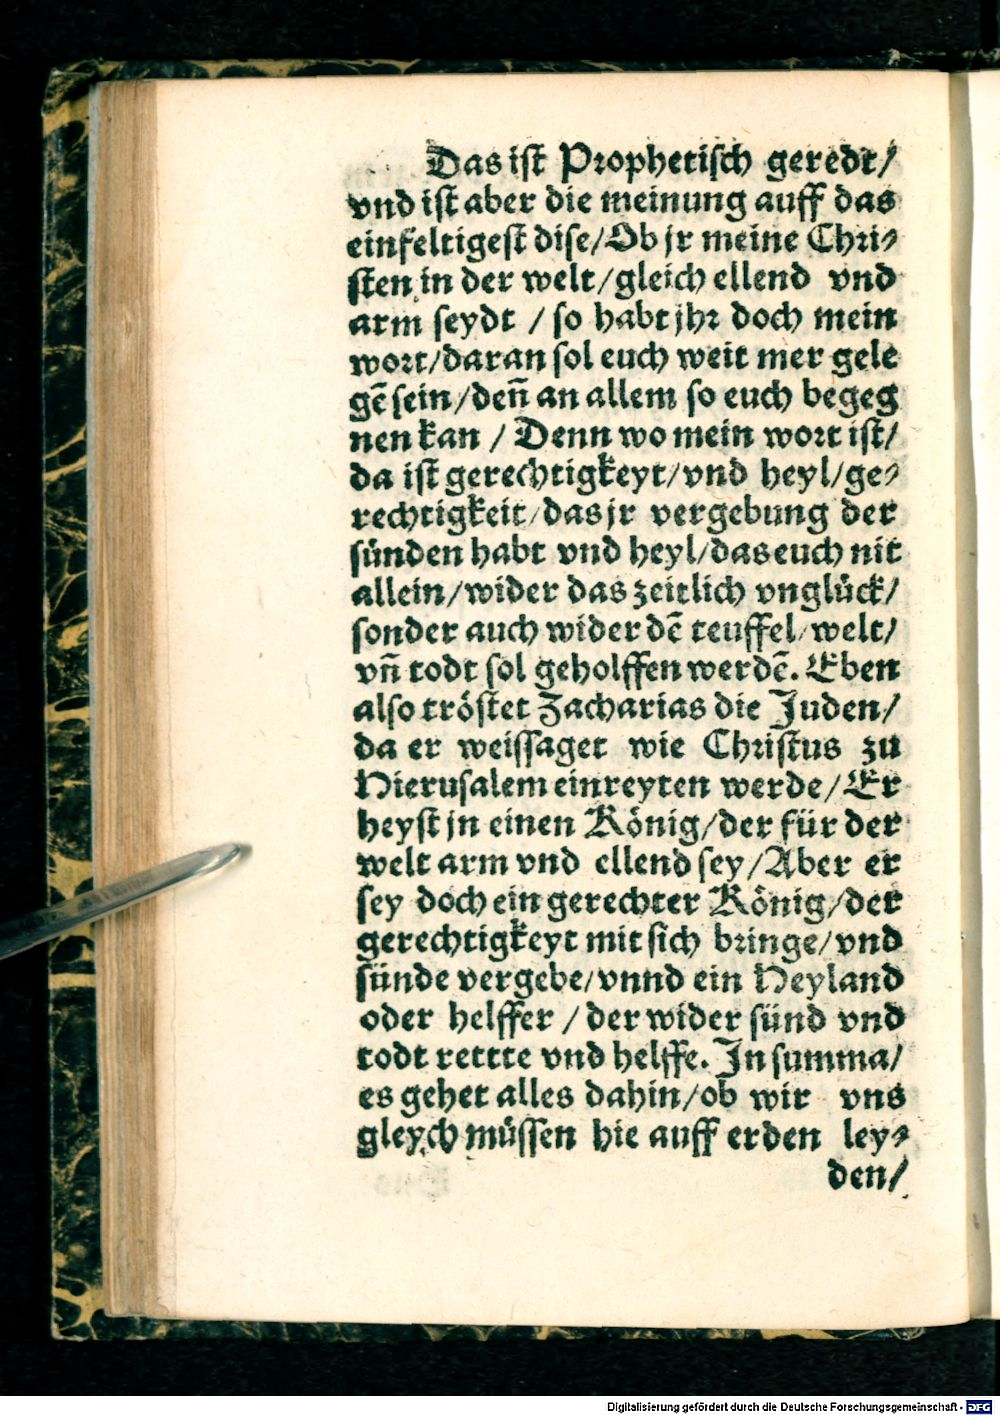 Das ist Prophetisch geredt/
vnd ist aber die meinung auff das
einfeltigest dise/Ob jr meine Chri⸗
sten in der welt/gleich ellend vnd
arm seydt / so habt jhr doch mein
wort/daran sol euch weit mer gele
gē sein/den̄ an allem so euch begeg
nen kan / Denn wo mein wort ist/
da ist gerechtigkeyt/vnd heyl/ge⸗
rechtigkeit/das jr vergebung der
sünden habt vnd heyl/das euch nit
allein/wider das zeitlich vnglück/
sonder auch wider dē teuffel/welt/
vn̄ todt sol geholffen werdē. Eben
also tröstet Zacharias die Juden/
da er weissaget wie Christus zu
Hierusalem einreyten werde/Er
heyst jn einen König/der für der
welt arm vnd ellend sey/Aber er
sey doch ein gerechter König/der
gerechtigkeyt mit sich bringe/vnd
sünde vergebe/vnnd ein Heyland
oder helffer / der wider sünd vnd
todt rettte vnd helffe. In summa/
es gehet alles dahin/ob wir vns
gleych müssen hie auff erden ley⸗
den/
Digitalisierung gefördert durch die Deutsche Forschungsgemeinschaft - DFG